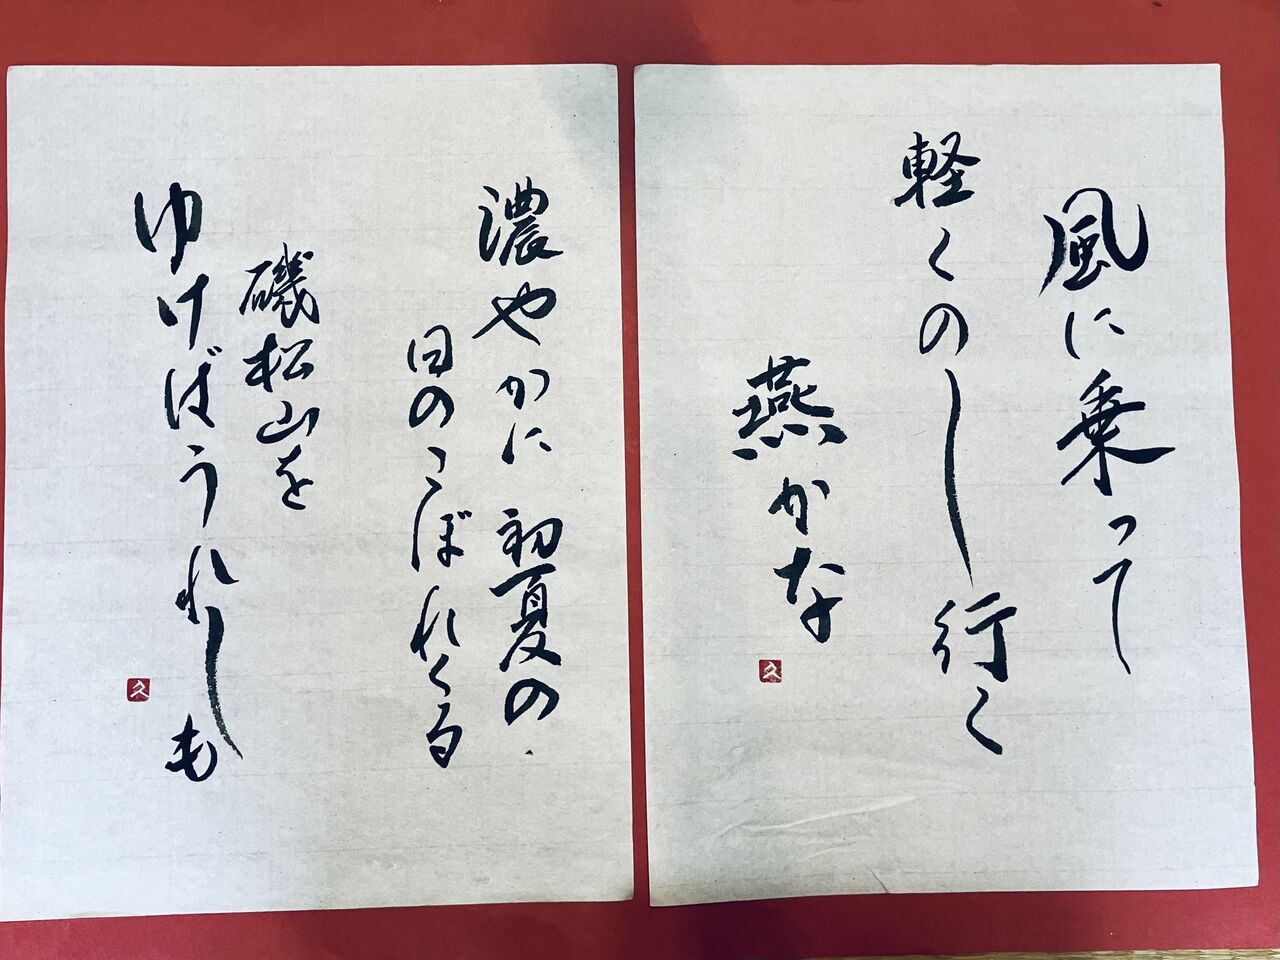 風に乗って
軽くのし行く
燕かな
久
濃やかに初夏の
日のこぼれくる
磯松山を
ゆけばうれしも
久